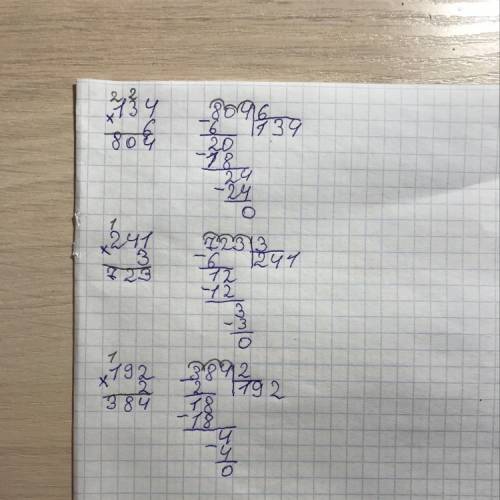 2 2
×134
6
804
804|6
-6 |134
20
-18
24
-24
0
1
×241
3
723
723|3
-6 |241
12
-12
3
-3
0
1
×192
2
384
384|2
-2 |192
18
-18
4
-4
0